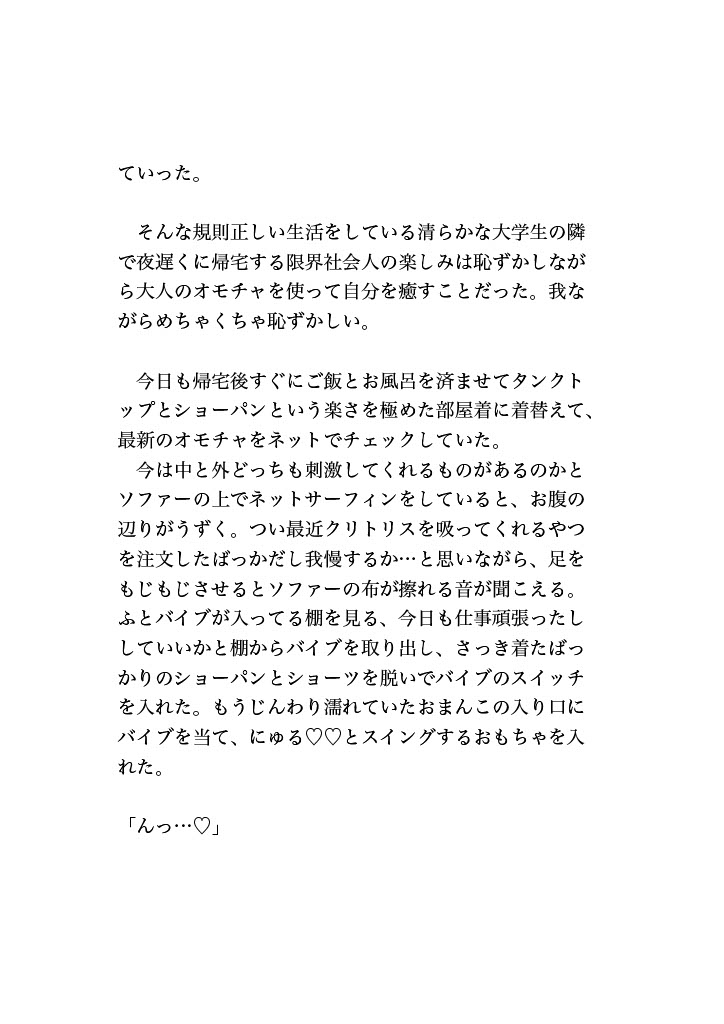 ていった。
そんな規則正しい生活をしている清らかな大学生の隣
で夜遅くに帰宅する限界社会人の楽しみは恥ずかしなが
ら大人のオモチャを使って自分を癒すことだった。我な
がらめちゃくちゃ恥ずかしい。
今日も帰宅後すぐにご飯とお風呂を済ませてタンクト
ップとショーパンという楽さを極めた部屋着に着替えて、
最新のオモチャをネットでチェックしていた。
今は中と外どっちも刺激してくれるものがあるのかと
ソファーの上でネットサーフィンをしていると、お腹の
辺りがうずく。つい最近クリトリスを吸ってくれるやつ
を注文したばっかだし我慢するか…と思いながら、足を
もじもじさせるとソファーの布が擦れる音が聞こえる。
ふとバイブが入ってる棚を見る、今日も仕事頑張ったし
していいかと棚からバイブを取り出し、さっき着たばっ
かりのショーパンとショーツを脱いでバイブのスイッチ
を入れた。もうじんわり濡れていたおまんこの入り口に
バイブを当て、にゅる♡♡とスイングするおもちゃを入
れた。
「んっ…♡」